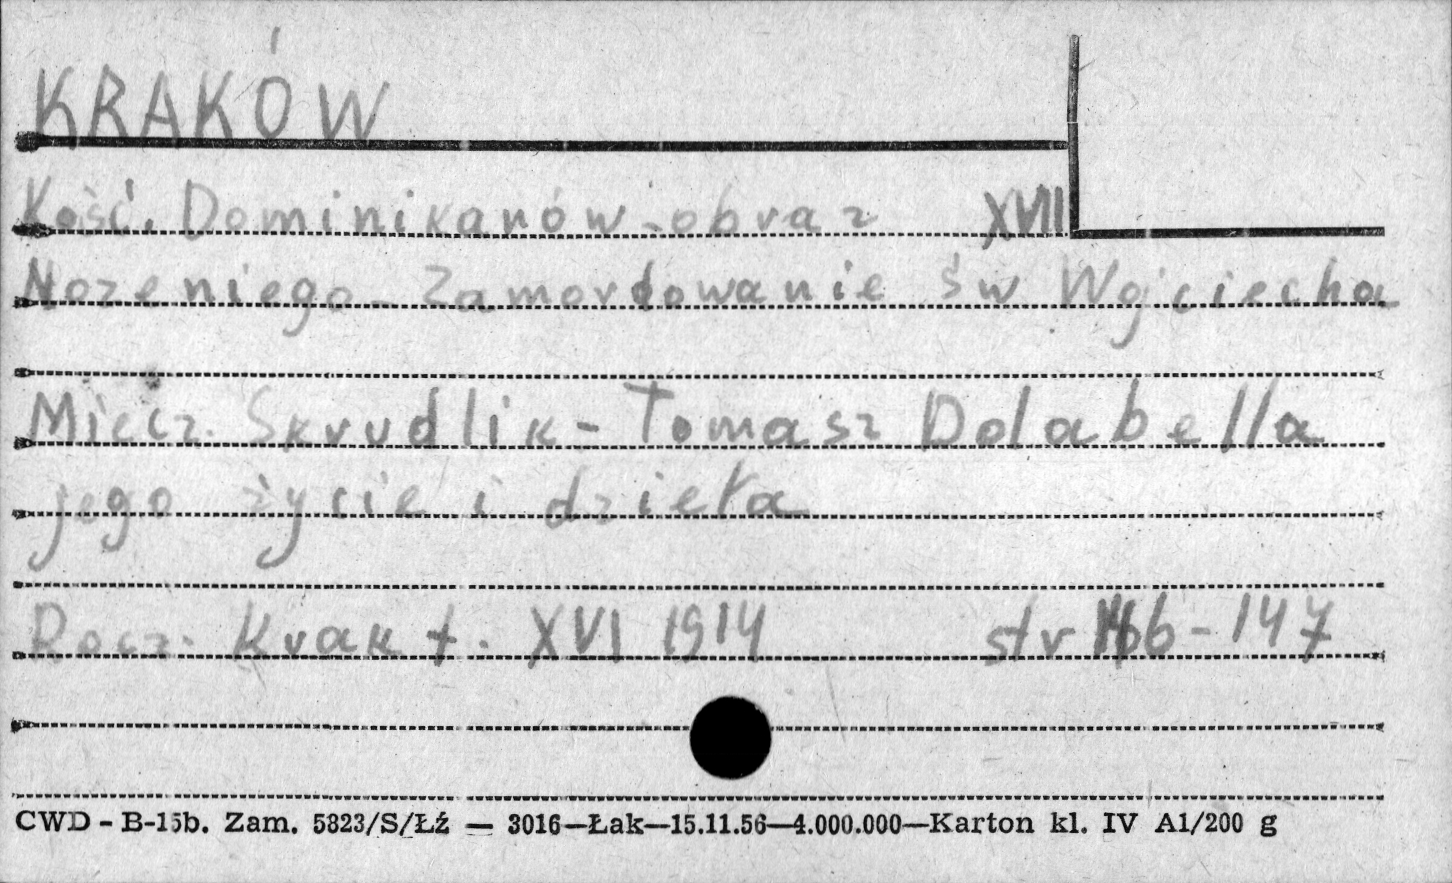 KRAKÓW
Kość. Dominikanów - obraz XVII
Nozeniego - Zamordowanie św Wojciecha
Miecz. Skrudlik - Tomasz Dolabella
jego życie i dzieła
Rocz. Krak t. XVI 1914 str 146-147
CWD - B-15b. Zam. 5823/S/Łź — 3016—Łak—15.11.56—4.000.000—Karton kl. IV A1/200 g